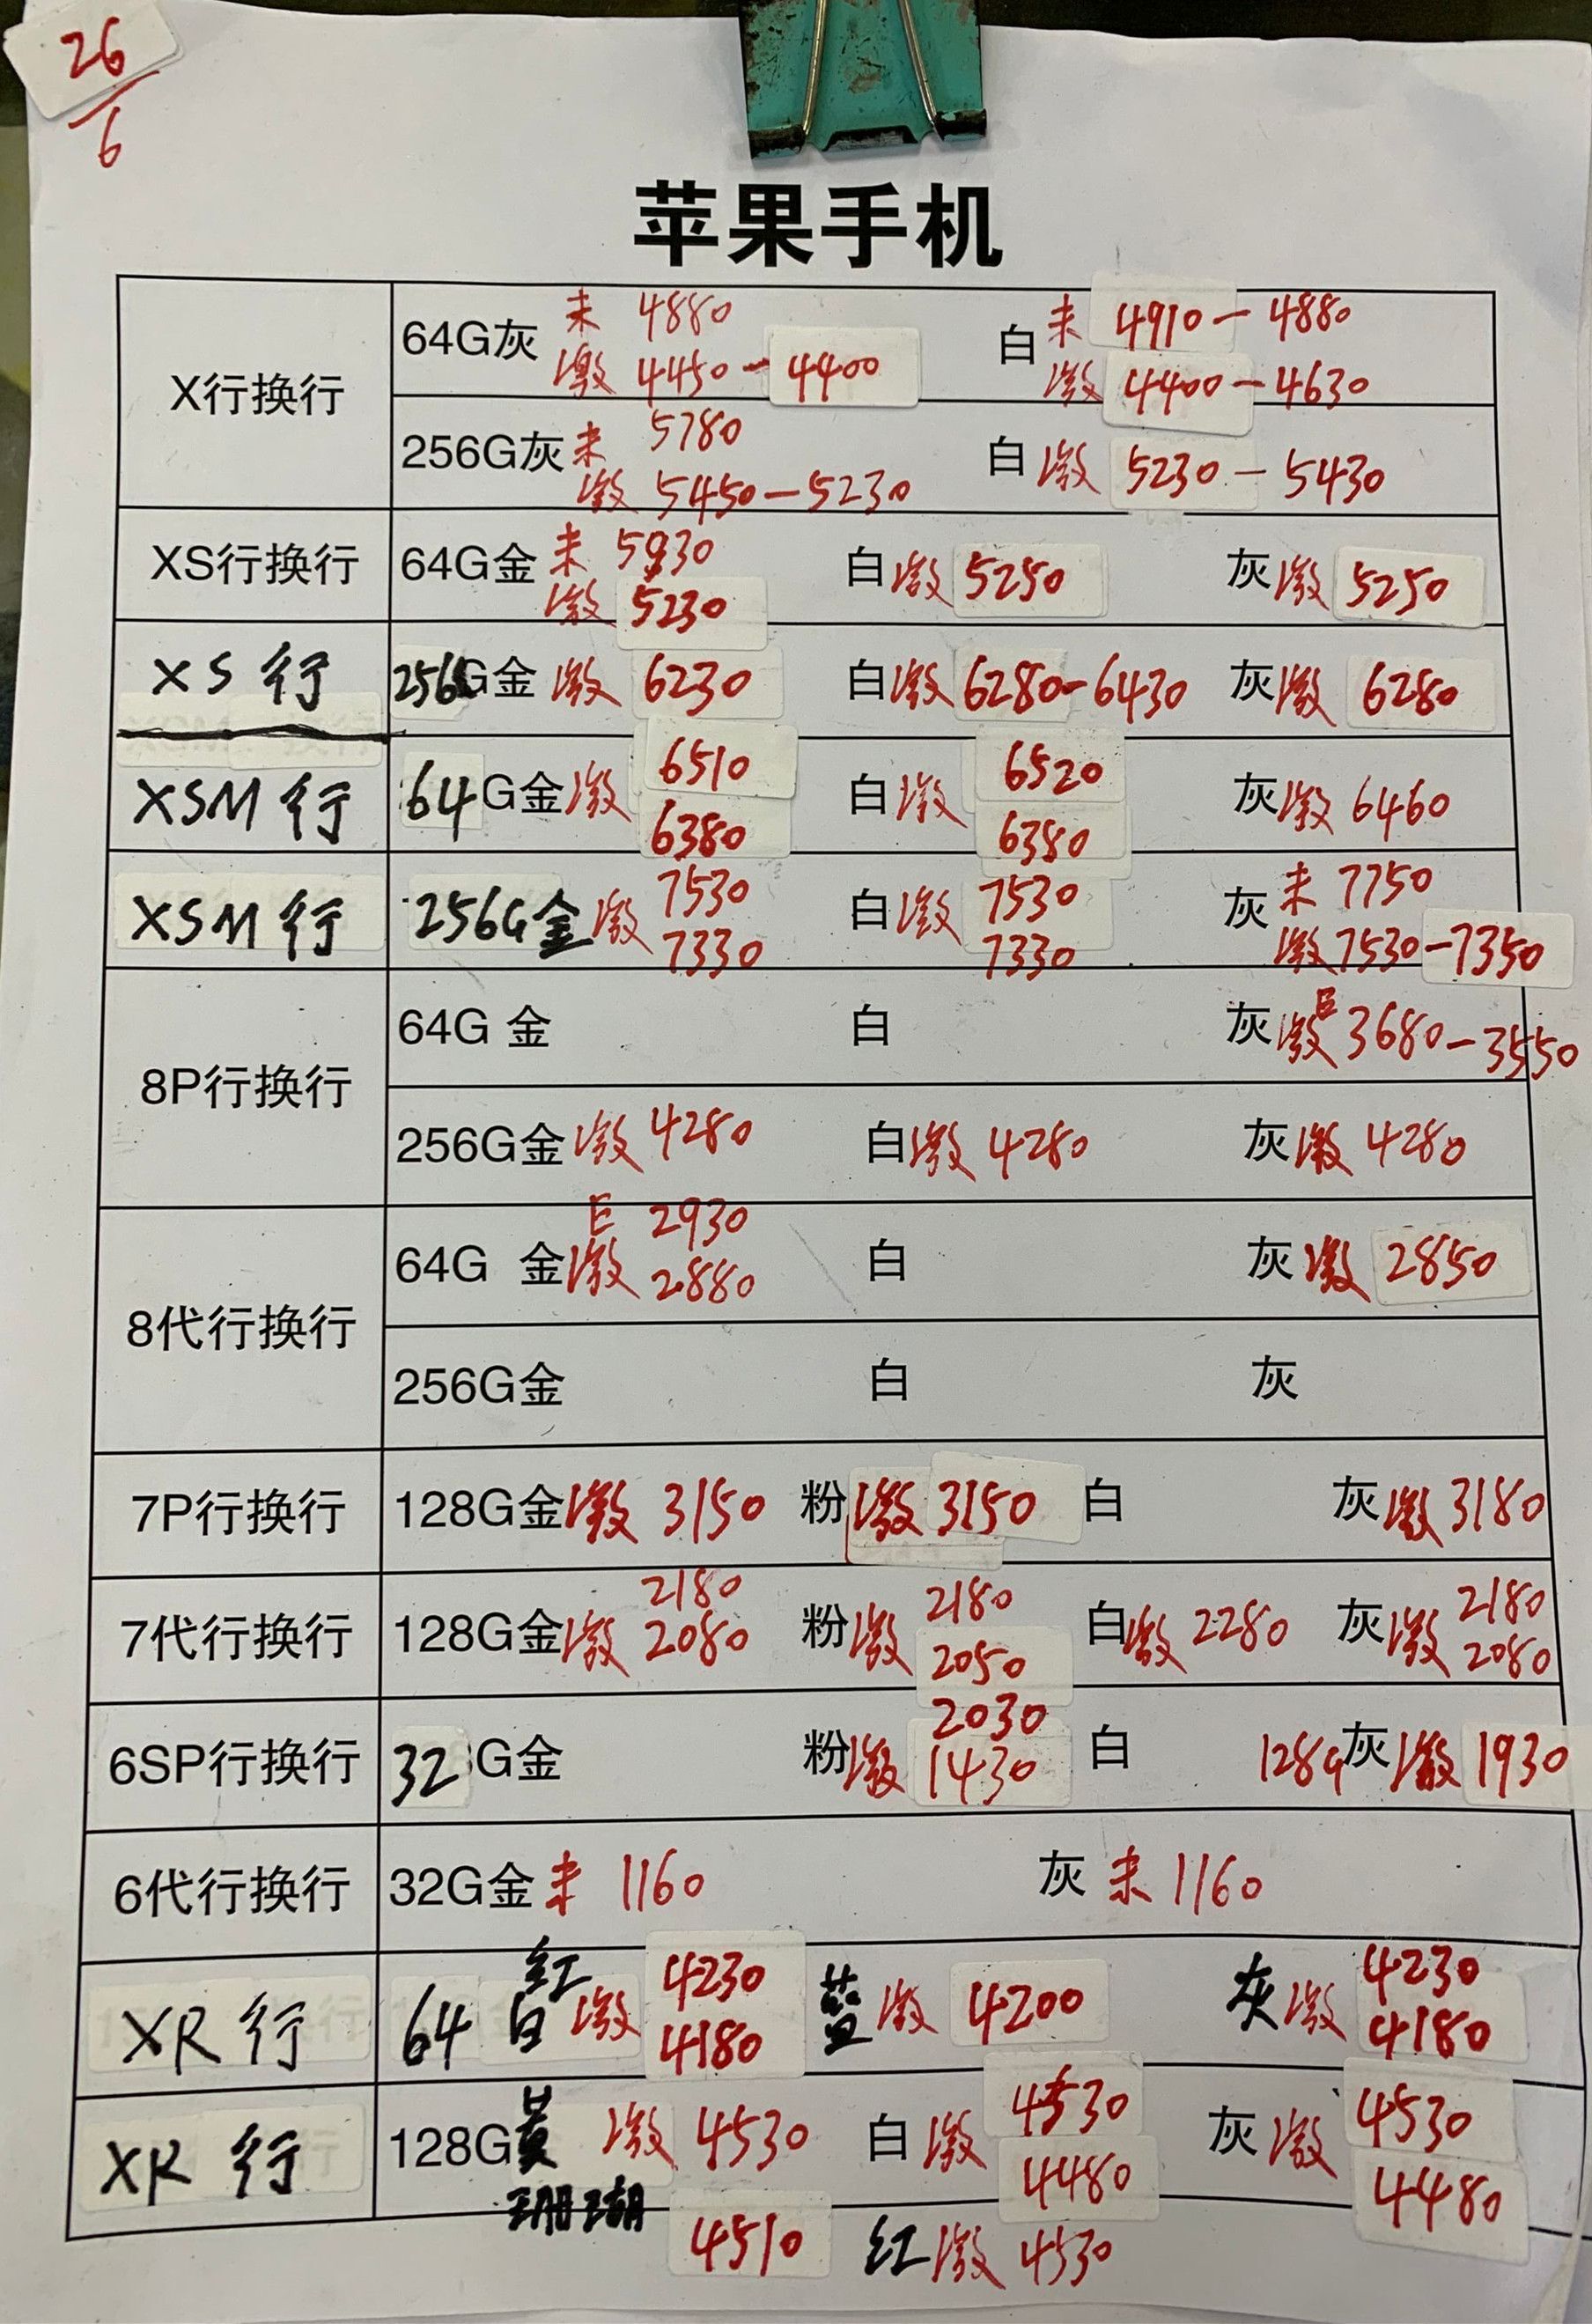 26
6
苹果手机
X行换行
64G灰 未 4880 白 未 4910-4880
激 4450-4400 激 4400-4630
256G灰 未 5780 白 激 5230-5430
激 5450-5230
XS行换行 64G金 未 5930 白 激 5250 灰 激 5250
激 5230
XS 行 256G金 激 6230 白 激 6280-6430 灰 激 6280
XSM 行 64G金 激 6510 白 激 6520 灰 激 6460
6380 6380
XSM 行 256G金 激 7530 白 激 7530 灰 未 7750
7330 7330 激 7530-7350
8P行换行
64G 金 白 灰 激 E 3680-3550
256G金 激 4280 白 激 4280 灰 激 4280
8代行换行
E 2930
64G 金 激 2880 白 灰 激 2850
256G金 白 灰
7P行换行 128G金 激 3150 粉 激 3150 白 灰 激 3180
7代行换行 128G金 激 2180 粉 激 2180 白 激 2280 灰 激 2180
2080 2050 2080
6SP行换行 32G金 粉 激 2030 白 128G灰 激 1930
1430
6代行换行 32G金 未 1160 灰 未 1160
XR 行 64 红 激 4230 蓝 激 4200 灰 激 4230
白 4180 4180
XR 行 128G黄 激 4530 白 激 4530 灰 激 4530
4480 4480
珊瑚 4510 红 激 4530